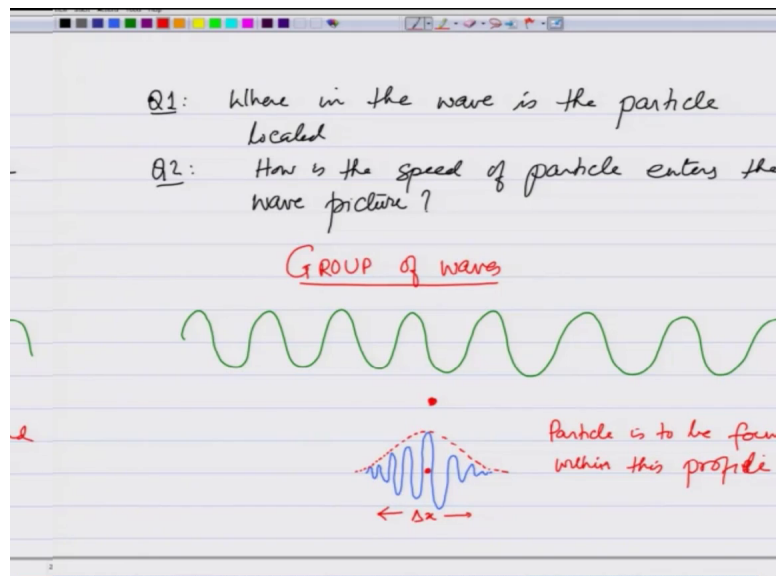 Q1: Where in the wave is the particle
Located
Q2: How is the speed of particle enters the
wave picture?
GROUP of waves
Particle is to be foun
within this profile
← Δx →
2